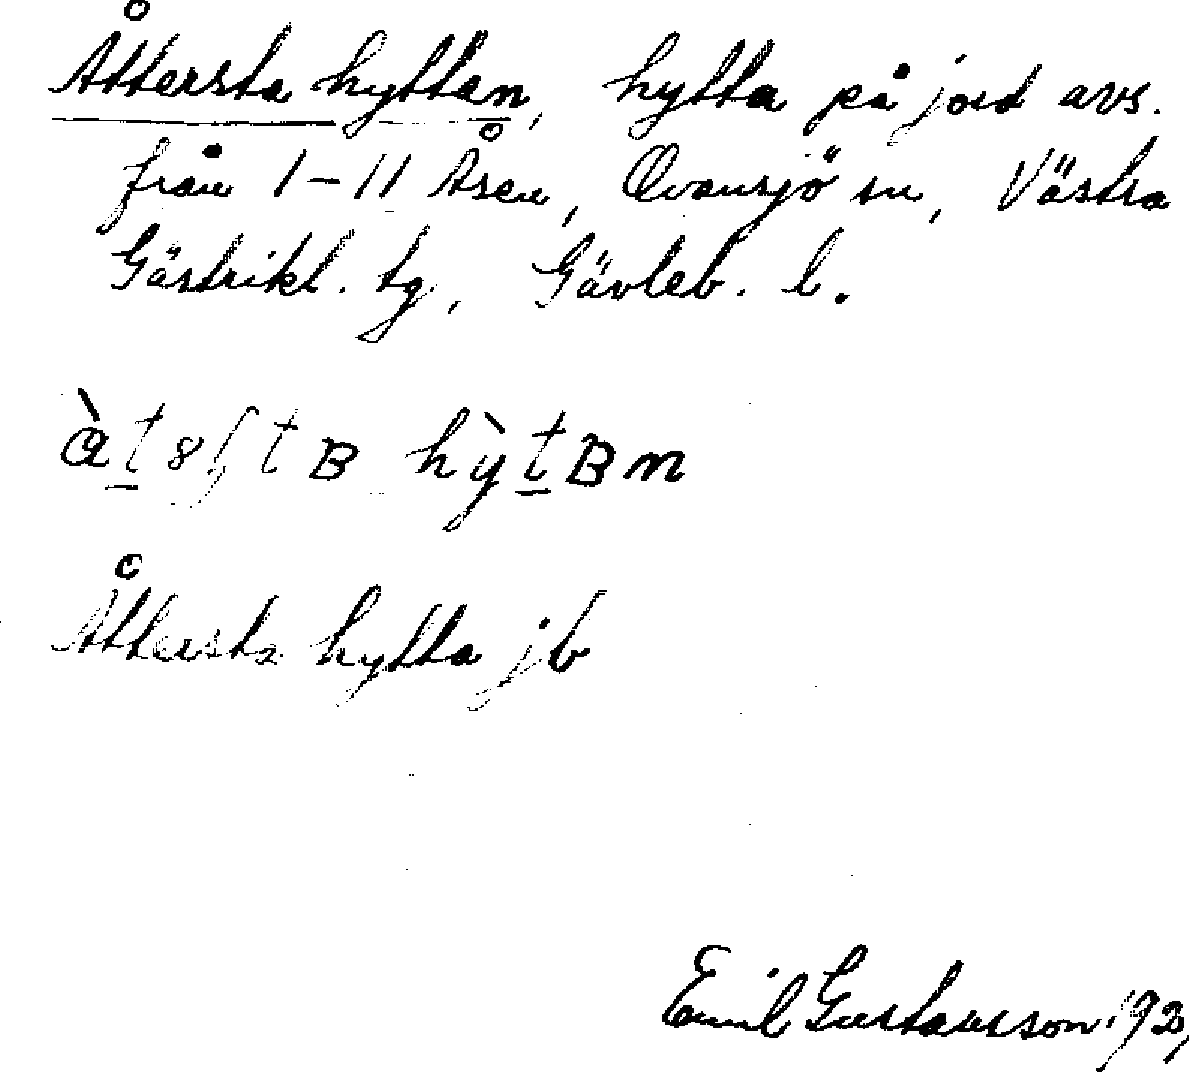 Åttersta hyttan, hytta på jord avs.
från 1-11 Åsen, Ovansjö sn, Västra
Gästrikl. tg, Gävleb. l.
Åttersta hytta jb
Emil Gustavsson